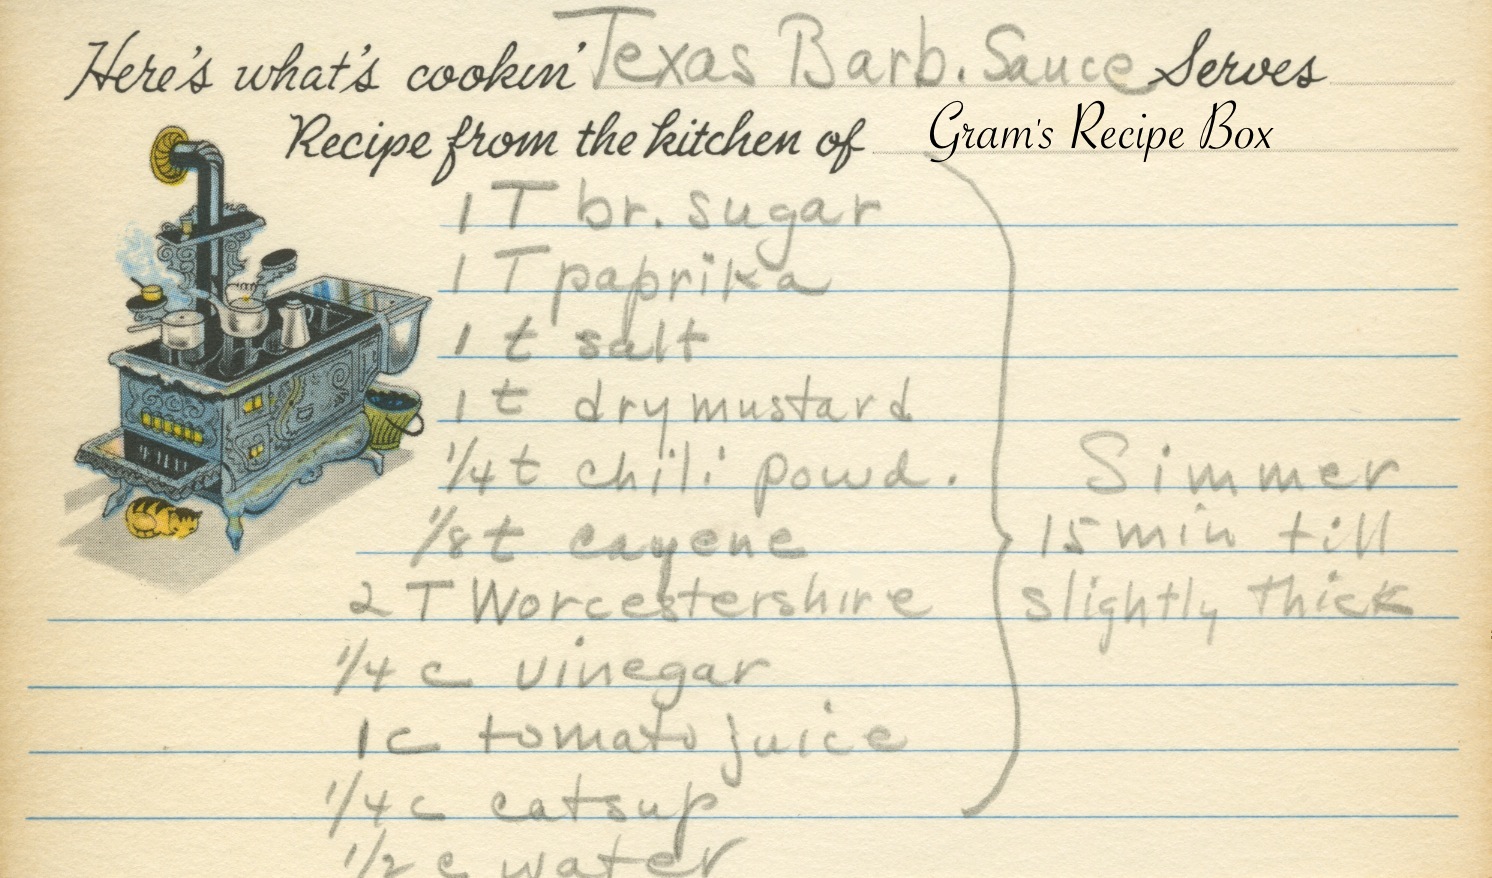 Here's what's cookin' Texas Barb. Sauce Serves
Recipe from the kitchen of Gram's Recipe Box
1 T br. sugar
1 T paprika
1 t salt
1 t dry mustard
1/4 t chili powd.
1/8 t cayene
2 T Worcestershire
1/4 c vinegar
1 c tomato juice
1/4 c catsup
1/2 c water
Simmer
15 min till
slightly thick